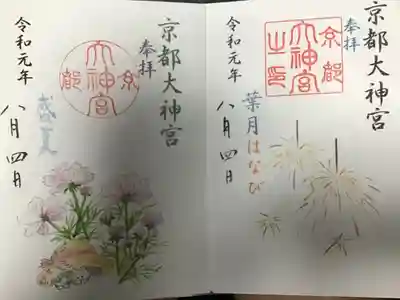 京都大神宮
奉拝
京都
大神宮
之印
葉月はなび
八月四日
京都大神宮
奉拝
京都
大神宮
盛夏
令和元年
八月四日
令和元年